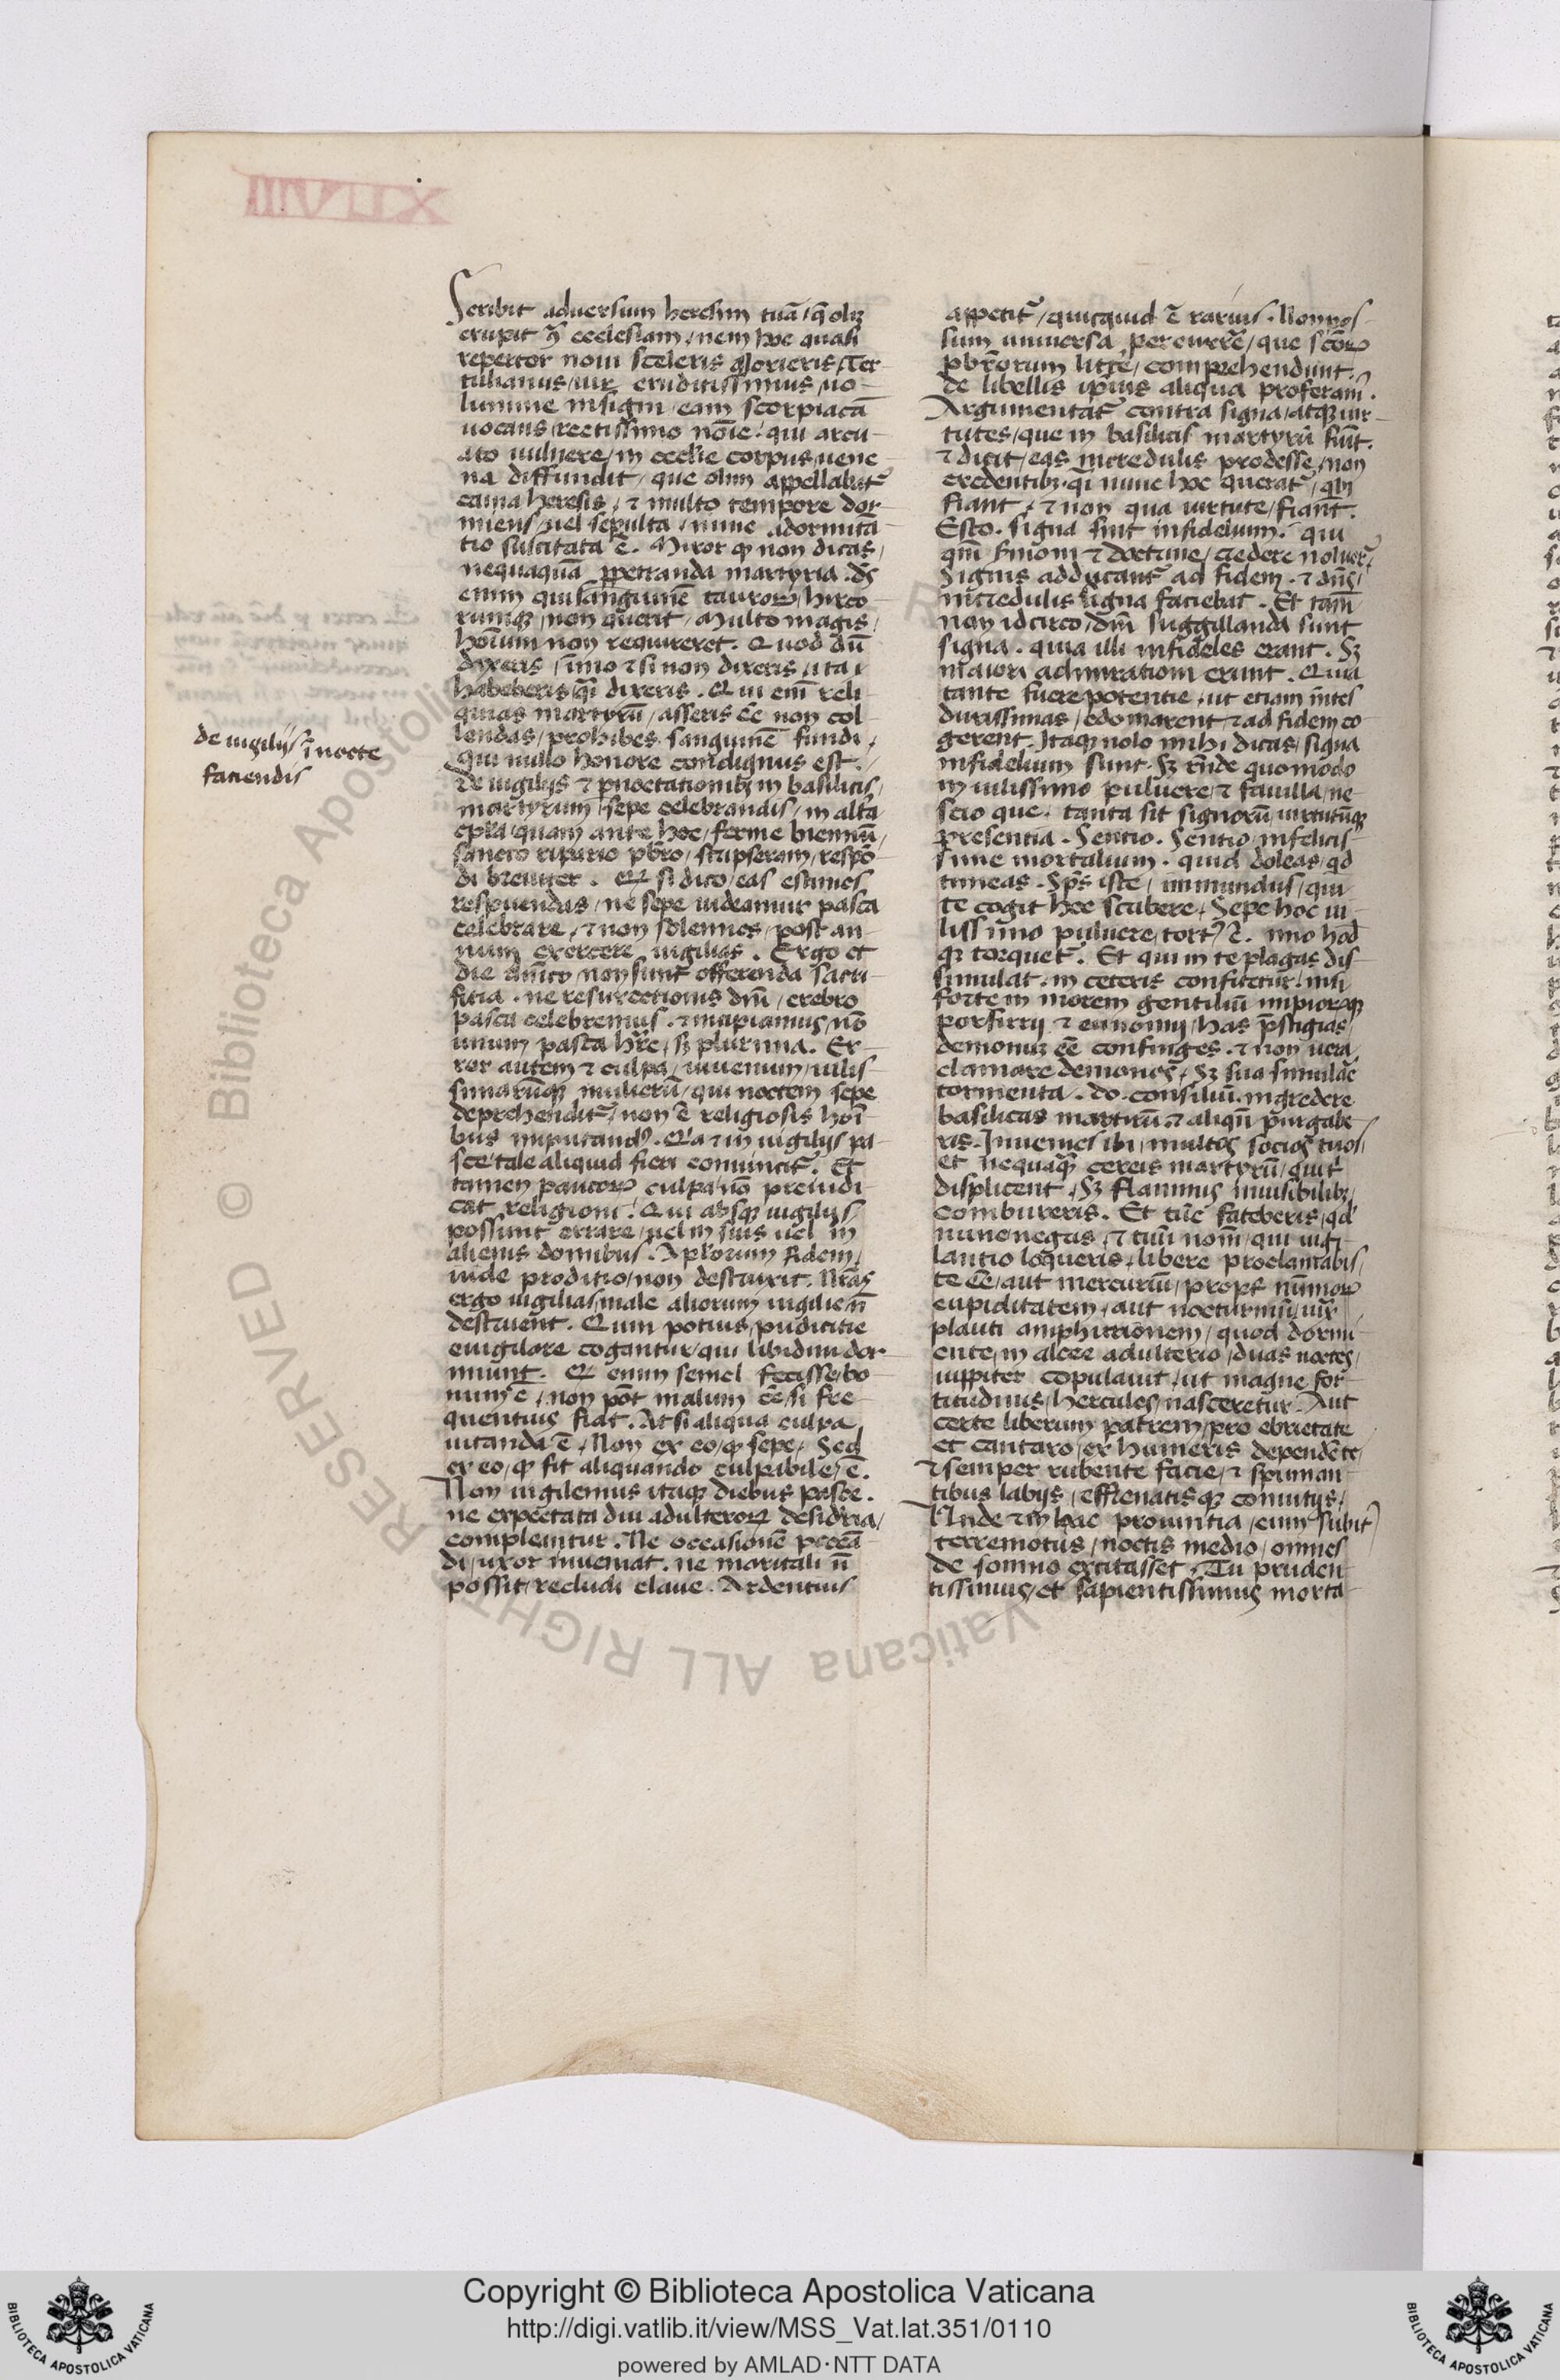 de uigilijs ī nocte
faciendis
Scribit aduersum heresim tuā, q̄ olī
erupit ꝯ̄ ecclesiam, nem hoc quasi
repertor noui sceleris glorieris, Ter-
tulianus, uir eruditissimus, uo-
lumine insigni, eam scorpiacā
uocans, rectissimo noīe. qui arcu-
ato uulnere, in ecclīe corpus, uene
na diffundit, que olim appellabat᷑
caina heresis, ⁊ multo tempore dor
miens, uel sepulta, nunc a dormita
tio suscitata ē. Miror ꝙ non dicas,
nequaquā ꝑpetranda martyria. dꝫ
enim qui sanguinē tauroꝝ, hirco
rumqꝫ, non querit, Multo magis,
hoīum non requireret. Quod dū
dixeris, īmo ⁊ si non dixeris, ita i
habeberis, qī dixeris. Qui enī reli-
quias martyrū, asseris ēē non col-
lendas, prohibes sanguinē fundi,
qui nullo honore condignus est.
De uigilijs ⁊ ꝑnoctationibꝫ in basilicis,
martyrum, sepe celebrandis, in alta
epl̄a quam ante hoc, ferme bienniū,
sancto ripario pb̄ro, scripseram, respō
di breuiter. Qꝫ si dico, eas estimes
respuendas, ne sepe uideamur pasca
celebrare, ⁊ non solennes, post an-
num exercere uigilias. Ergo et
die dn̄ico, non sunt offerenda sacri-
ficia. ne resurectionis dn̄i, crebro
pasca celebremus. ⁊ incipiamus, nō
unum pasca hr̄e, sꝫ plurima. Er-
ror autem ⁊ culpa, iuuenum, uilis
simarūqꝫ mulierū, qui noctem sepe
deprehendit᷑, non ē religiosis hoī-
bus imputandꝰ. Qꝛa ⁊ in uigilijs pa-
sce, tale aliquid fieri conuincit᷑. Et
tamen paucoꝝ culpa, nō preiudi-
cat religioni. Qui absqꝫ uigilijs,
possunt errare, uel in suis uel in
alienis domibus. Ap̄lorum fidem,
iude proditio, non destruxit. Nr̄as
ergo uigilias, male aliorum uigilie n̄
destruent. Quin potius, pudicitie
euigilare cogantur, qui libidini dor
miunt. Qꝫ enim semel fecisse, bo
num ē, non pōt malum ēē, si fre-
quentius fiat. At si aliqua culpa
uitanda ē, Non ex eo, ꝙ sepe, Sed
ex eo, ꝙ fit aliquando culpabile, ē.
Non uigilemus itaqꝫ diebus pasce.
ne expectata diu adulteroꝝ desideria,
compleantur. Ne occasionē peccā-
di, uxor inueniat. ne maritali n̄
possit, recludi claue. Ardentius
appetit᷑, quicquid ē rarius. Non pos-
sum uniuersa percurrēre, que sc̄oꝝ
pb̄rorum litt̄e, comprehendunt.
de libellis ipsius aliqua proferam.
Argumentat᷑ contra signa, atqꝫ uir-
tutes, que in basilicis martyrū fiūt.
⁊ dicit, eas incredulis prodesse, non
credentibꝫ. qī nunc hoc querat᷑, qib
fiant, ⁊ non qua uirtute, fiant.
Esto. signa sint infidelium. qui
qm̄ sermoni ⁊ doctrine, credere noluer᷑,
Signis adducant᷑ ad fidem. ⁊ dn̄s,
incredulis signa faciebat. Et tam̄
non idcirco, dn̄i suggillanda sunt
signa. quia illi infideles erant. Sꝫ
maiori admirationi erunt. Quia
tante fuere potentie, ut etiam mētes
durissimas, edomarent ⁊ ad fidem co
gerent. Itaqꝫ nolo mihi dicas, signa
infidelium sunt. Sꝫ rn̄de quomodo
in uilissimo puluere, ⁊ fauilla, ne-
scio que, tanta sit signorū, uirtutūqꝫ
presentia. Sentio. Sentio, infelicis-
sime mortalium. quid doleas, qd
timeas. Sp̄s iste, immundus, qui
te cogit hec scribere, Sepe hoc ui-
lissimo puluere, tortꝰ ē. imo hod̄
qꝫ torquet᷑. Et qui in te plagas dis-
simulat, in ceteris confitetur. nisi
forte in morem gentiliū impiorūqꝫ
porfirij ⁊ eunomij, has p̄stigias,
demonuꝫ ēē confinges, ⁊ non uera
clamare demones, sꝫ sua simulāe
tormenta. do consiliū. ingredere
basilicas martirū, ⁊ aliqn̄ purgabe-
ris. Inuenies ibi, multos socios tuos,
et nequaqꝫ cereis martyrū, qui t᷑
displicent, Sꝫ flammis inuisibilibꝫ,
combureris. Et tūc fateberis, qd
nunc negas, ⁊ tuū nom̄, qui uigi-
lantio loqueris, libere proclamabis,
te ēē, aut mercuriū, propt̄ nūmoꝝ
cupiditatem, aut nocturnū, iux̄
plauti amphitrionem, quod dormi-
ente, in alcee adulterio, duas noctes,
iuppiter copulauit, ut magne for
titudinis, hercules, nasceretur. Aut
certe liberum patrem, pro ebrietate
et cantaro, ex humeris dependēte,
⁊ semper rubente facie, ⁊ spuman
tibus labijs, effrenatisqꝫ conuitijs,
Unde ⁊ in hac prouintia, cum subit᷑
terremotus, noctis medio, omnes
de somno excitasset. Tu pruden
tissimus, et sapientissimus morta-
Copyright © Biblioteca Apostolica Vaticana
http://digi.vatlib.it/view/MSS_Vat.lat.351/0110
powered by AMLAD·NTT DATA
BIBLIOTECA APOSTOLICA VATICANA
BIBLIOTECA APOSTOLICA VATICANA
© Biblioteca Apostolica Vaticana ALL RIGHTS RESERVED